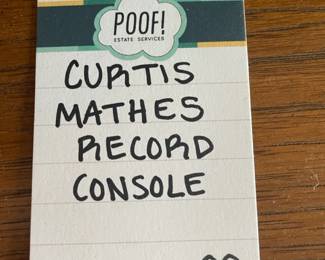 POOF!
ESTATE SERVICES
CURTIS
MATHES
RECORD
CONSOLE